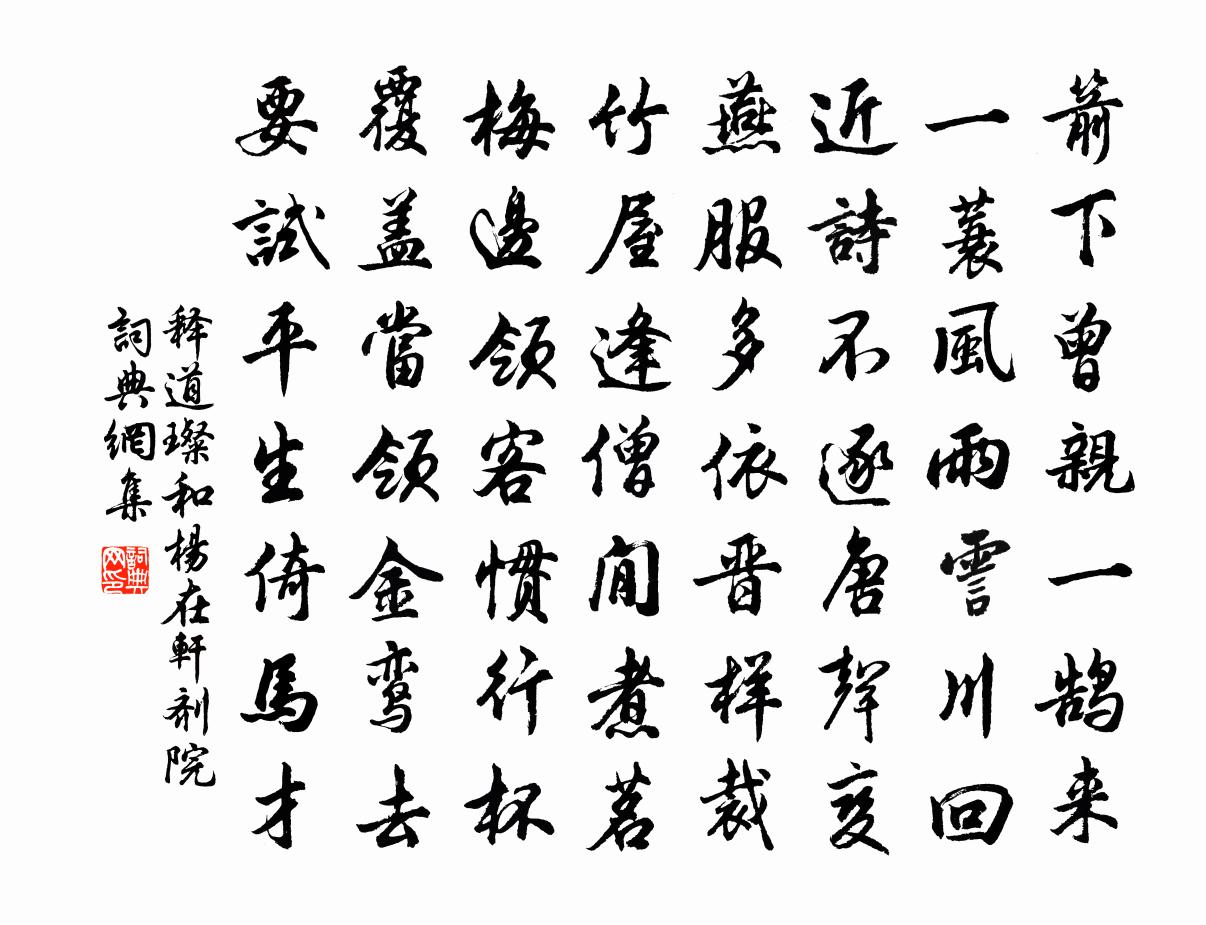 箭下曾親一鹄来
一蓑風雨霅川回
近詩不逐唐聲变
燕服多依晋样裁
竹屋逢僧閒煮茗
梅邊領客慣行杯
覆盖當領金鸾去
要試平生倚馬才
释道璨和楊在軒剂院
詞典網集
詞典网印